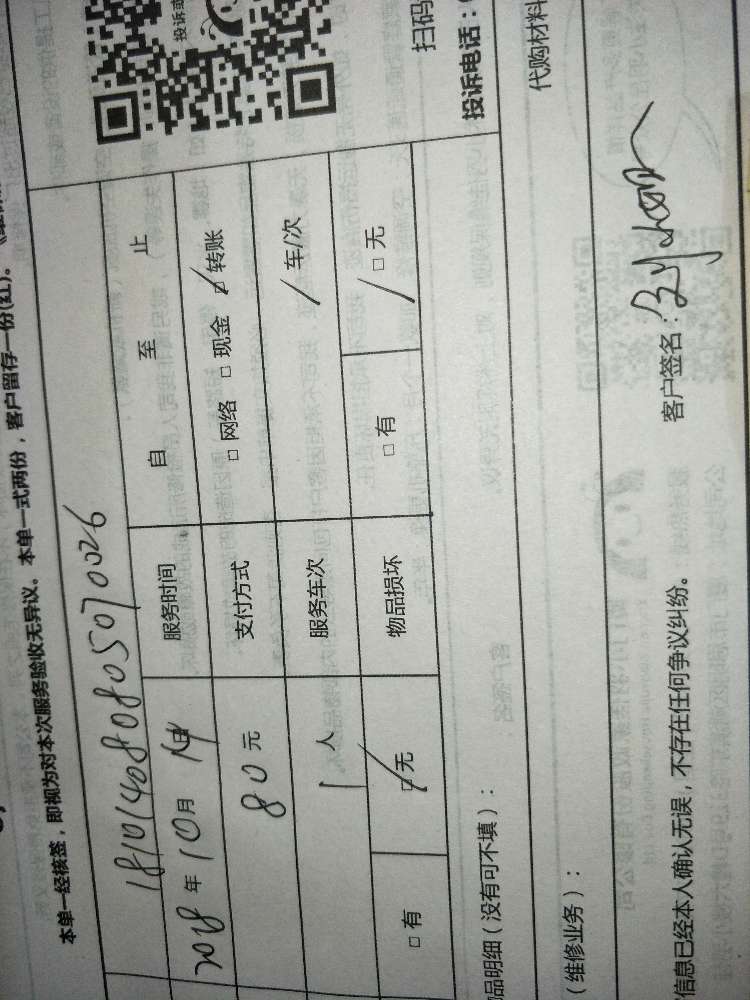 投诉或
扫码
投诉电话：
本单一经核签，即视为对本次服务验收无异议。本单一式两份，客户留存一份(红)。
181014080805070026
2018 年 10 月 14 日 服务时间 自 至 止
80 元 支付方式 □ 网络 □ 现金 □ 转账
1 人 服务车次 / 车/次
□ 有 □ 无 物品损坏 □ 有 □ 无
品明细（没有可不填）：
（维修业务）： 代购材料
信息已经本人确认无误，不存在任何争议纠纷。 客户签名：